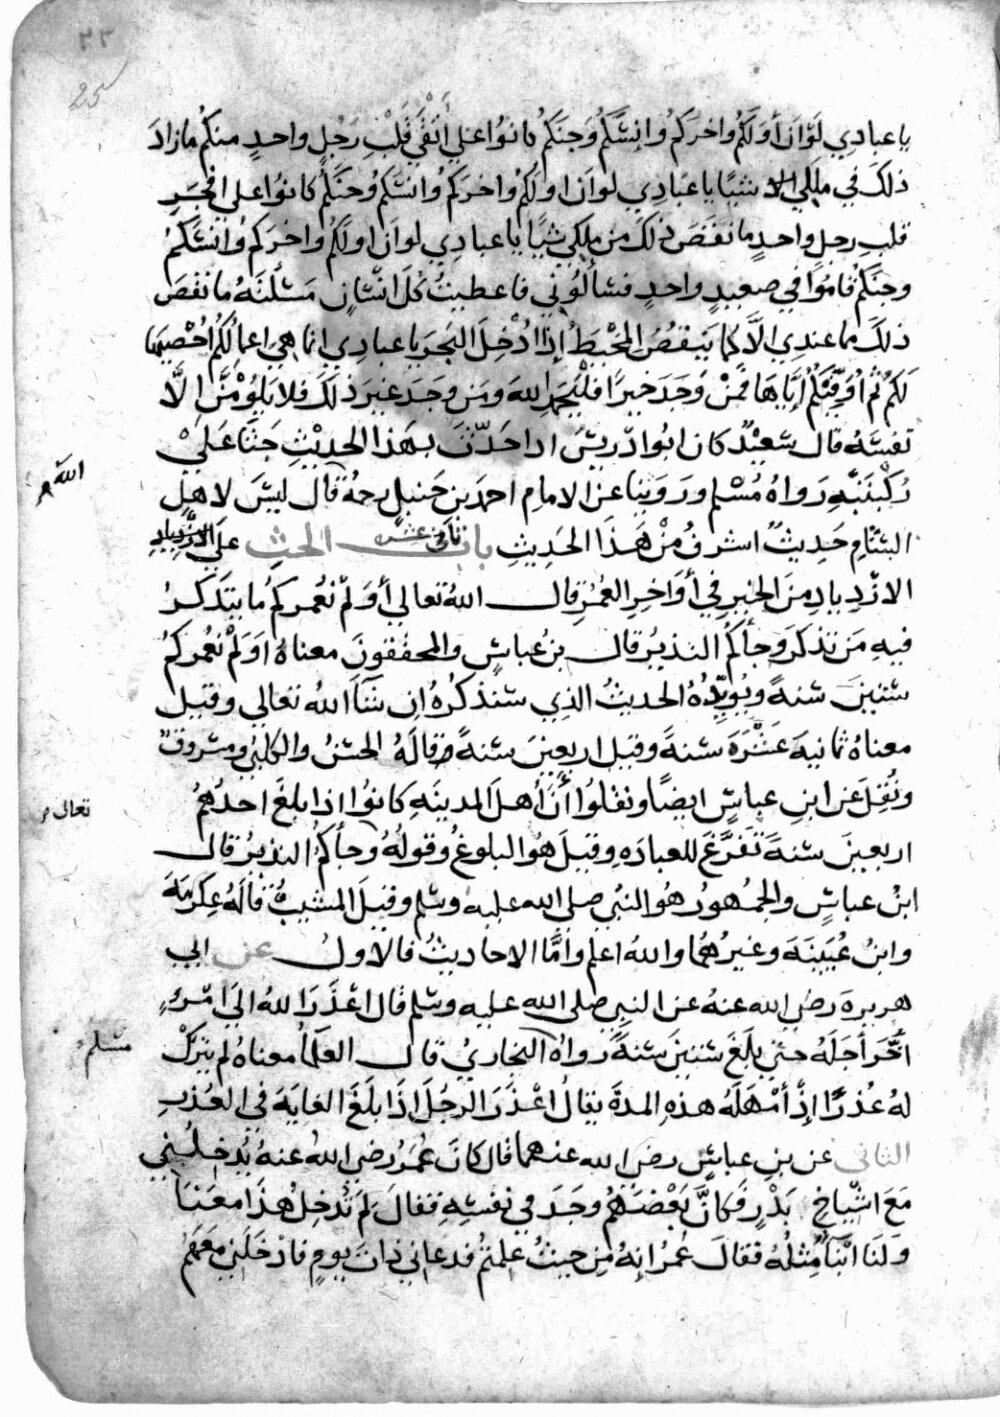 ٢٣
25
يا عبادي لو ان أولكم واخركم وانسكم وجنكم كانوا علي أتقي قلب رجل واحد منكم مازاد
ذلك في ملكي شيا يا عبادي لو ان اولكم واخركم وانسكم وجنكم كانوا علي افجر
قلب رجل واحد ما نقص ذلك من ملكي شيا يا عبادي لو ان اولكم واخركم وانسكم
وجنكم قاموا في صعيد واحد فسألوني فاعطيت كل انسان مسئلته ما نقص
ذلك ما عندي الا كما ينقص المخيط إذا ادخل البحر يا عبادي انما هي اعمالكم احصيها
لكم ثم أوفيكم إياها فمن وجد خيرا فليحمد الله ومن وجد غير ذلك فلا يلومن الا
نفسه قال سعيد كان ابوا ادريس اذا حدث بهذا الحديث جثا علي
ركبتيه رواه مسلم وروينا عن الامام احمد بن حنبل رحمه قال ليس لاهل
الله
الشام حديث اشرف من هذا الحديث باب ثاني عشر الحث علي الازدياد
الازدياد من الخير في أواخر العمر قال الله تعالي أولم نعمركم ما يتذكر
فيه من تذكر وجأكم النذير قال بن عباس والمحققون معناه اولم نعمركم
ستين سنة ويويده الحديث الذي سنذكره ان شآ الله تعالي وقيل
معناه ثمانية عشرة سنة وقيل اربعين سنة قاله الحسن والكلبي ومسروق
ونقل عن ابن عباس ايضا ونقلوا أن أهل المدينه كانوا اذا بلغ احدهم
تعالى
اربعين سنة تفرغ للعباده وقيل هو البلوغ وقوله وجأكم النذير قال
ابن عباس والجمهور هو النبي صلي الله عليه وسلم وقيل المشيب قاله عكرمة
وابن عيينة وغيرهما والله اعلم وأما الاحاديث فالاول عن ابي
هريرة رضي الله عنه عن النبي صلي الله عليه وسلم قال اعذر الله الي امرء
أخر أجله حتي بلغ ستين سنة رواه البخاري قال العلمأ معناه لم يترك
مسلم
له عذرا إذ أمهله هذه المدة يقال اعذر الرجل اذا بلغ الغاية في العذر
الثاني عن بن عباس رضي الله عنهما قال كان عمر رضي الله عنه يدخلني
مع اشياخ بدر فكان بعضهم وجد في نفسه فقال لم تدخل هذا معنا
ولنا ابنآ مثله فقال عمر انه من حيث علمتم فدعاني ذات يوم فادخلني معهم